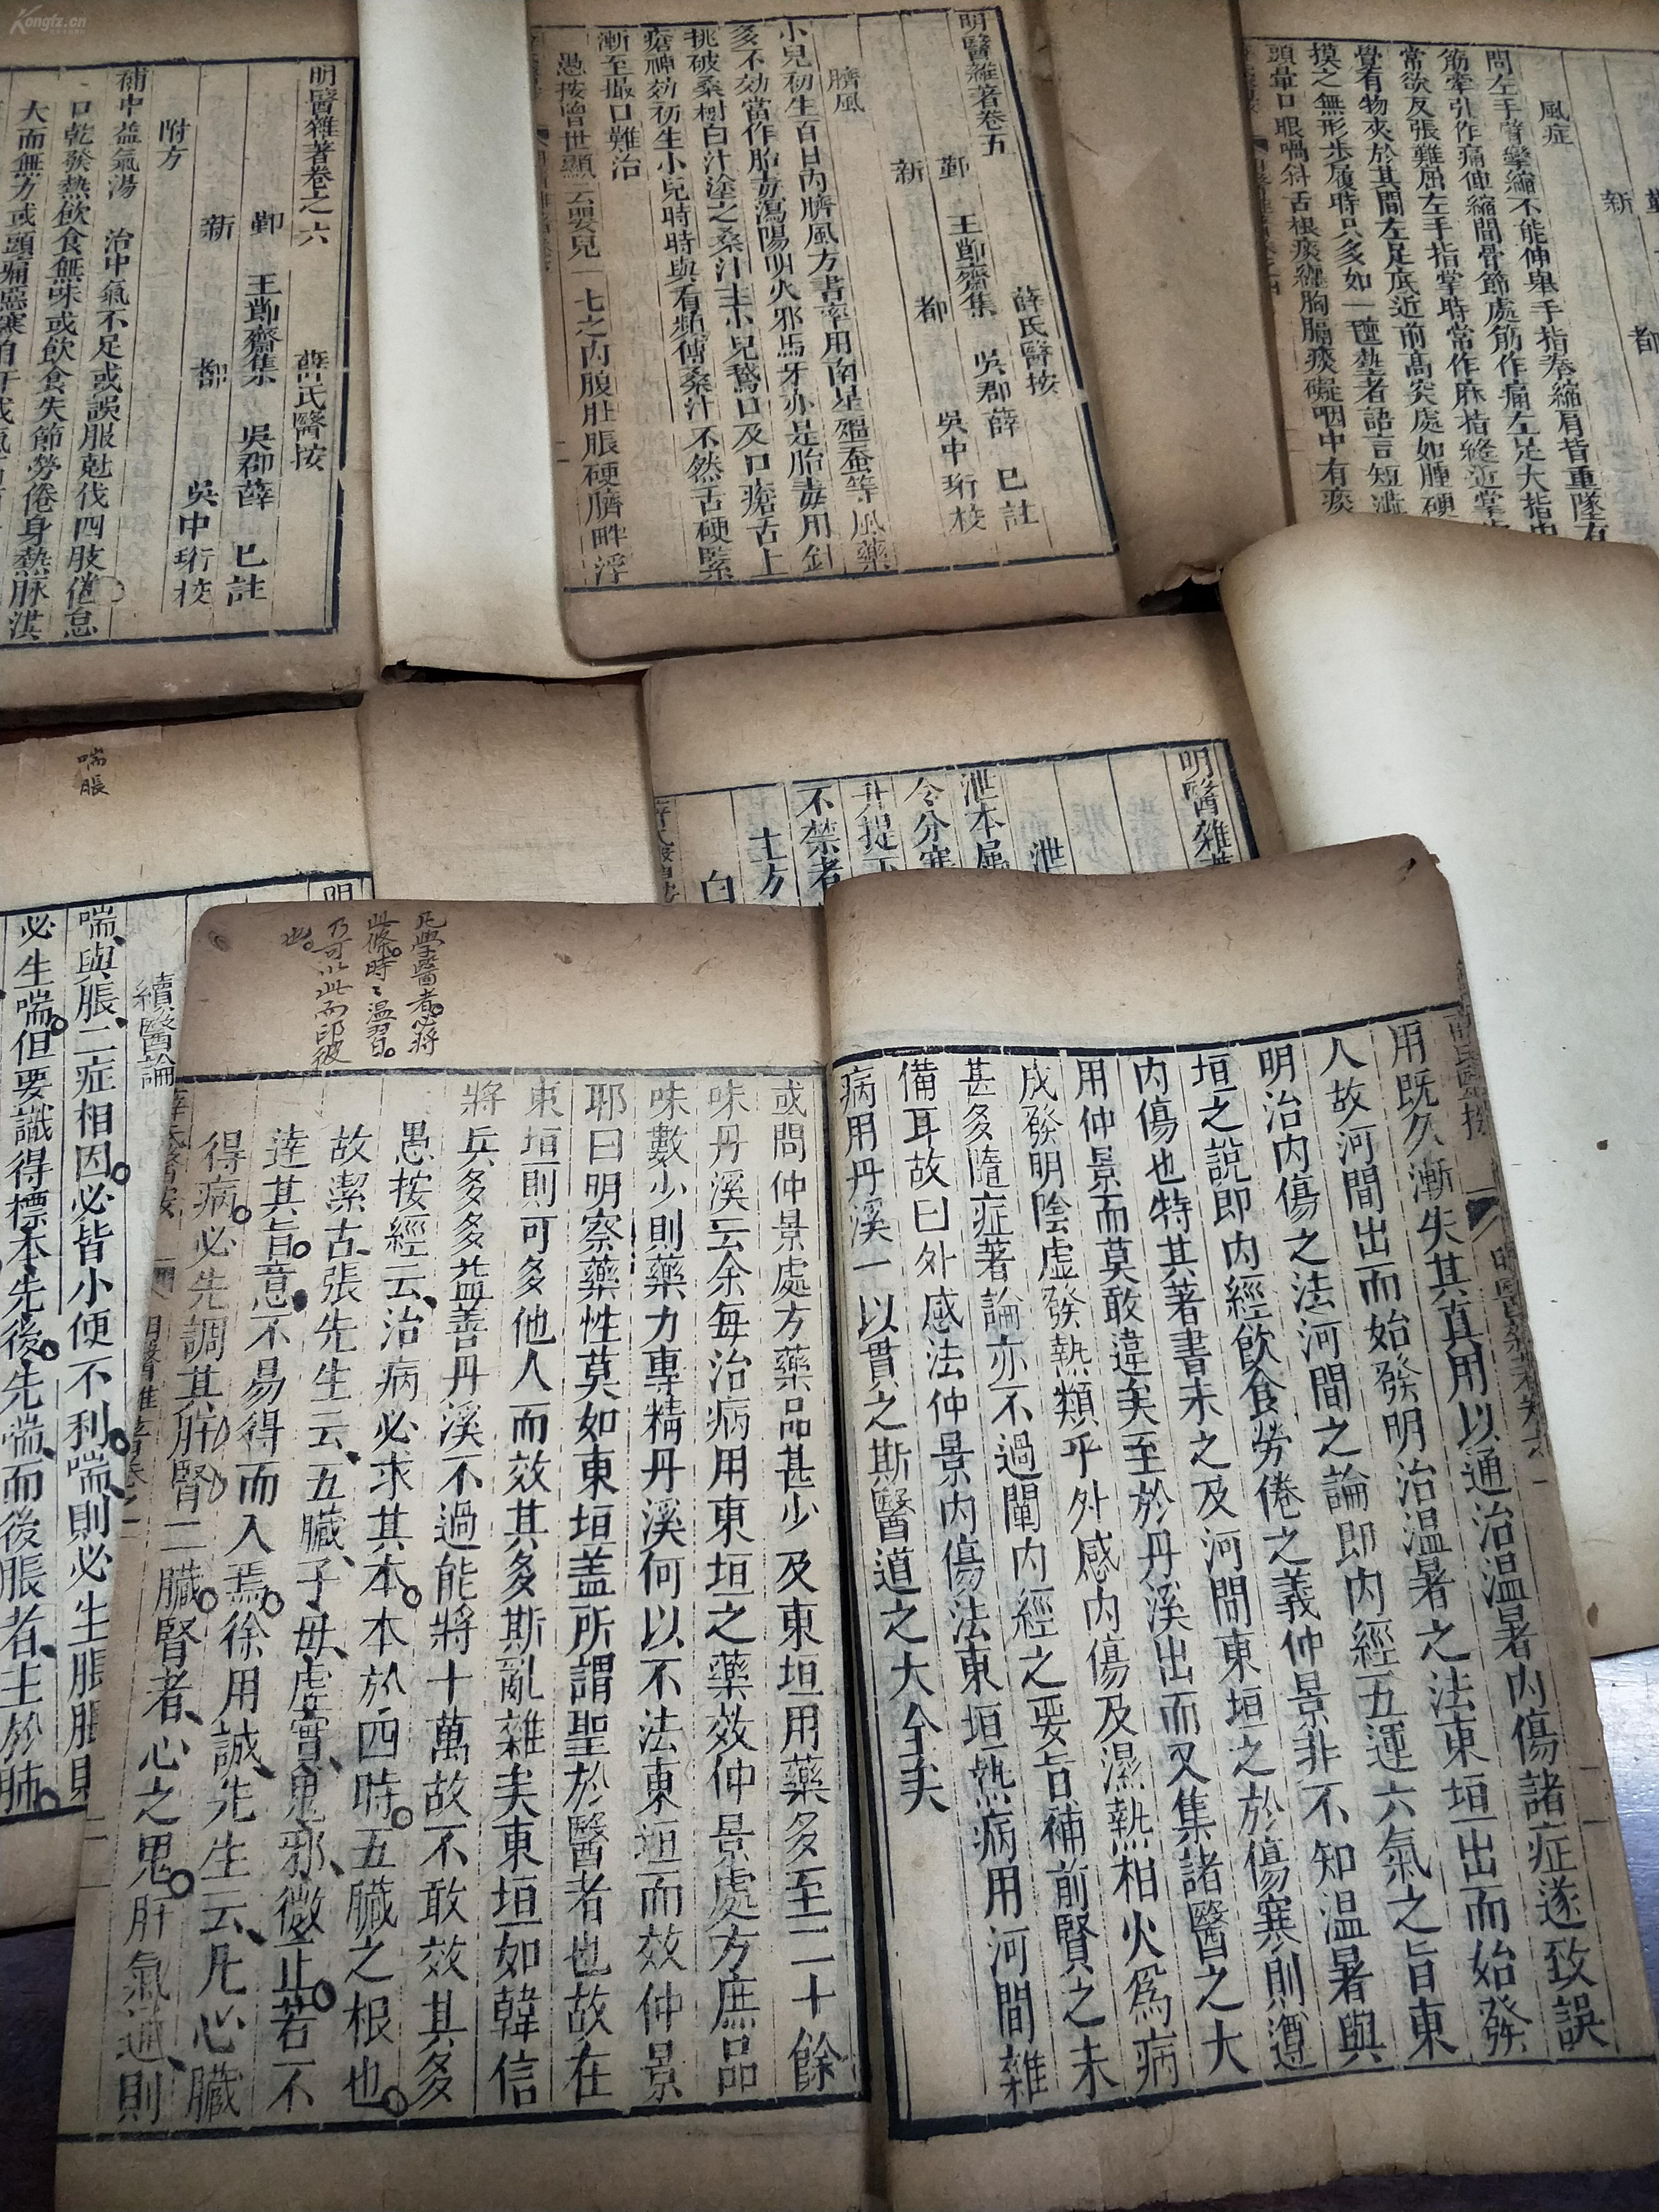 Kongfz.cn
明醫雜著卷之六
薛氏醫按
鄞 王節齋集 吳郡薛 已註
新 都 吳中珩校
附方
補中益氣湯 治中氣不足或誤服尅伐四肢倦怠
口乾發熱飲食無味或飲食失節勞倦身熱脉洪
大而無力或頭痛惡寒自汗或氣
明醫雜著卷五
薛氏醫按
鄞 王節齋集 吳郡薛 已註
新 都 吳中珩校
臍風
小兒初生百日內臍風方書率用南星殭蚕等風藥
多不効當作胎毒瀉陽明火邪馬牙亦是胎毒用針
挑破桑樹白汁塗之桑汁主小兒鵝口及口瘡舌上
瘡神効初生小兒時時與看頻傳桑汁不然舌硬緊
漸至撮口難治
愚按曾世顯云嬰兒一七之內腹肚脹硬臍畔浮
新 都
風症
問左手臂攣縮不能伸舉手指拳縮肩背重墜有
筋牽引作痛伸縮間骨節處筋作痛左足大指中
常欲反張難屈左手指掌時常作麻指縫近掌
覺有物夾於其間左足底近前高突處如腫硬
摸之無形步履時只多如一
頭暈口眼喎斜舌根痰纏胸膈痰礙咽中有痰
喘脹
續醫論
喘與脹二症相因必皆小便不利喘則必生脹脹則
必生喘但要識得標本先後先喘而後脹者主於肺
明醫雜
泄
泄本屬
令分寒
升提下
不禁者
主方
白
用既久漸失其真用以通治溫暑內傷諸症遂致誤
人故河間出而始發明治溫暑之法東垣出而始發
明治內傷之法河間之論即內經五運六氣之旨東
垣之說即內經飲食勞倦之義仲景非不知溫暑與
內傷也特其著書未之及河間東垣之於傷寒則遵
用仲景而莫敢違矣至於丹溪出而又集諸醫之大
成發明陰虛發熱類乎外感內傷及濕熱相火為病
甚多隨症著論亦不過闡內經之要旨補前賢之未
備耳故曰外感法仲景內傷法東垣熱病用河間雜
病用丹溪一以貫之斯醫道之大全矣
凡學醫者必將
此條時〻溫習
乃可以此而印彼
也
或問仲景處方藥品甚少及東垣用藥多至二十餘
味丹溪云余每治病用東垣之藥效仲景處方庶品
味數少則藥力專精丹溪何以不法東垣而效仲景
耶曰明察藥性莫如東垣盖所謂聖於醫者也故在
東垣則可多他人而效其多斯亂雜矣東垣如韓信
將兵多多益善丹溪不過能將十萬故不敢效其多
愚按經云治病必求其本本於四時五臟之根也
故潔古張先生云五臟子母虛實鬼邪微正若不
達其旨意不易得而入焉徐用誠先生云凡心臟
得病必先調其肝腎二臟腎者心之鬼肝氣通則